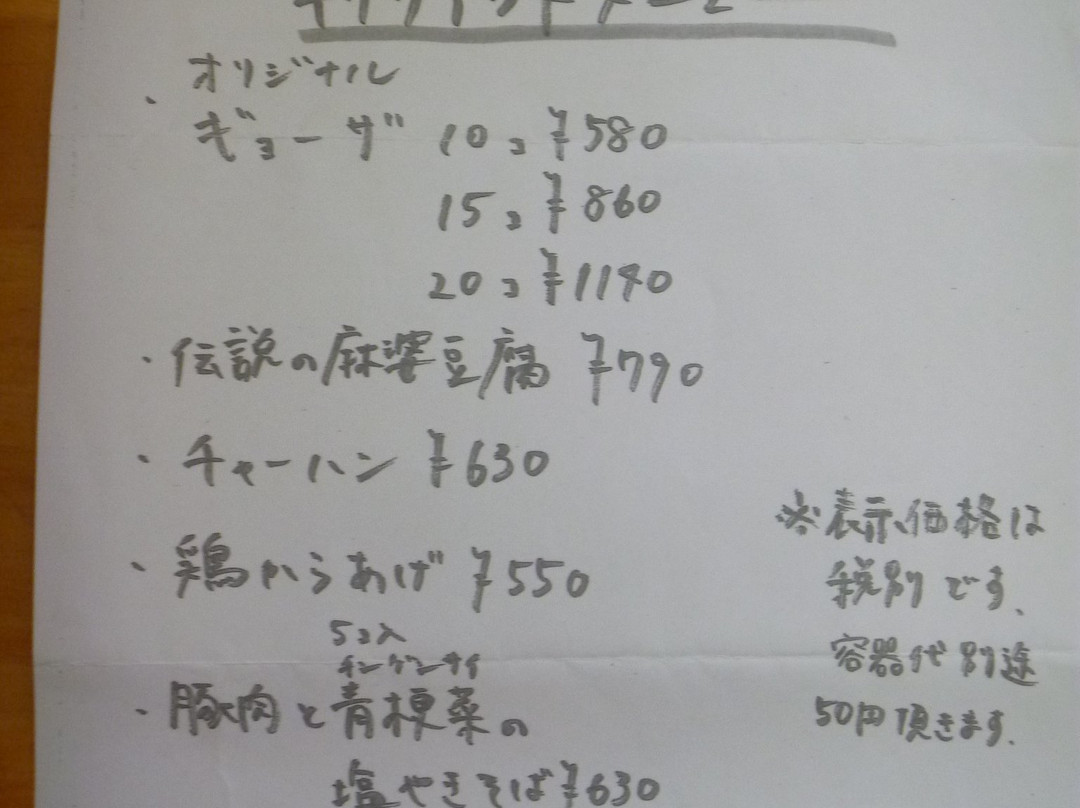 オリジナル
・ギョーザ 10コ ¥580
15コ ¥860
20コ ¥1140
・伝説の麻婆豆腐 ¥790
・チャーハン ¥630
・鶏からあげ ¥550
5コ入
チンゲンサイ
・豚肉と青梗菜の
塩やきそば ¥630
※表示価格は
税別です、
容器代別途
50円頂きます。